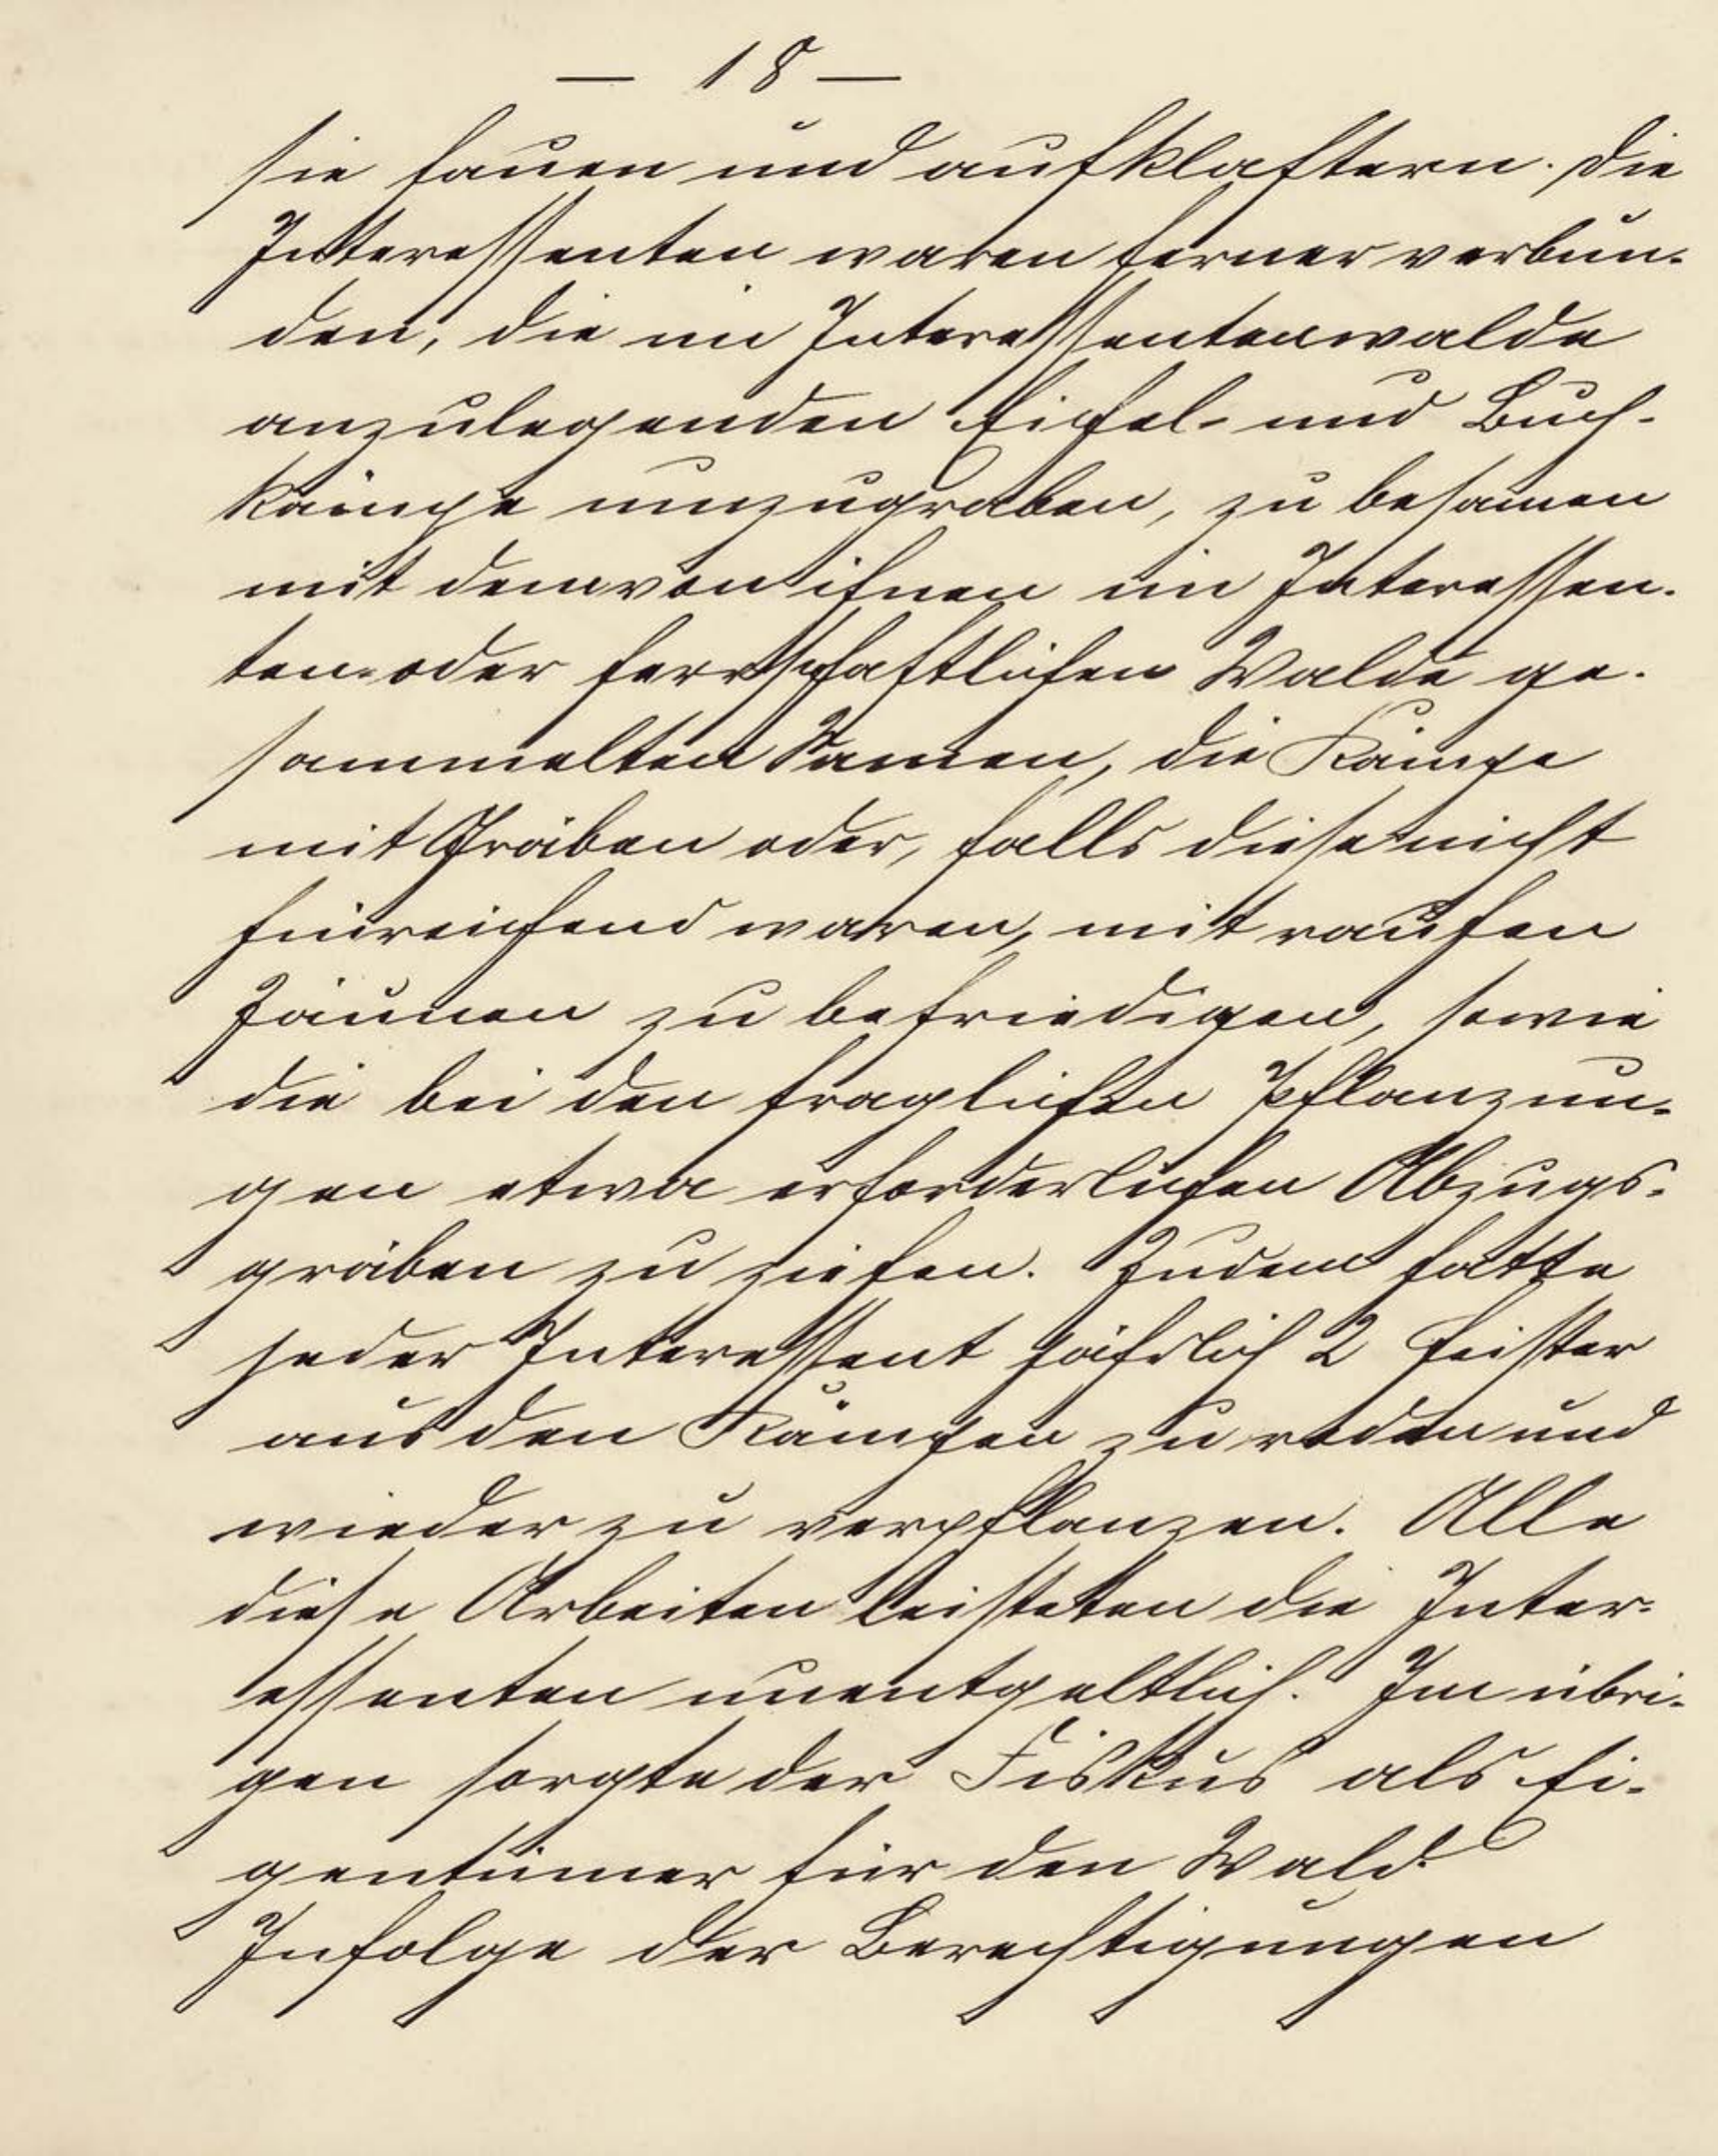 — 18 —
sie hauen und aufklaftern. Die
Interessenten waren ferner verbun-
den, die im Interessentenwalde
anzulegenden Eichel- und Buch-
kämpe umzugraben, zu besamen
mit dem von ihnen im Interessen-
ten- oder herrschaftlichen Walde ge-
sammelten Samen, die Kämpe
mit Gräben oder, falls diese nicht
hinreichend waren, mit rauhen
Zäunen zu befriedigen, sowie
die bei den fraglichen Pflanzun-
gen etwa erforderlichen Abzugs-
gräben zu ziehen. Zudem hatte
jeder Interessent jährlich 2 Heister
aus den Kämpen zu roden und
wieder zu verpflanzen. Alle
diese Arbeiten leisteten die Inter-
essenten unentgeltlich. Im übri-
gen sorgte der Fiskus als Ei-
gentümer für den Wald.
Infolge der Berechtigungen